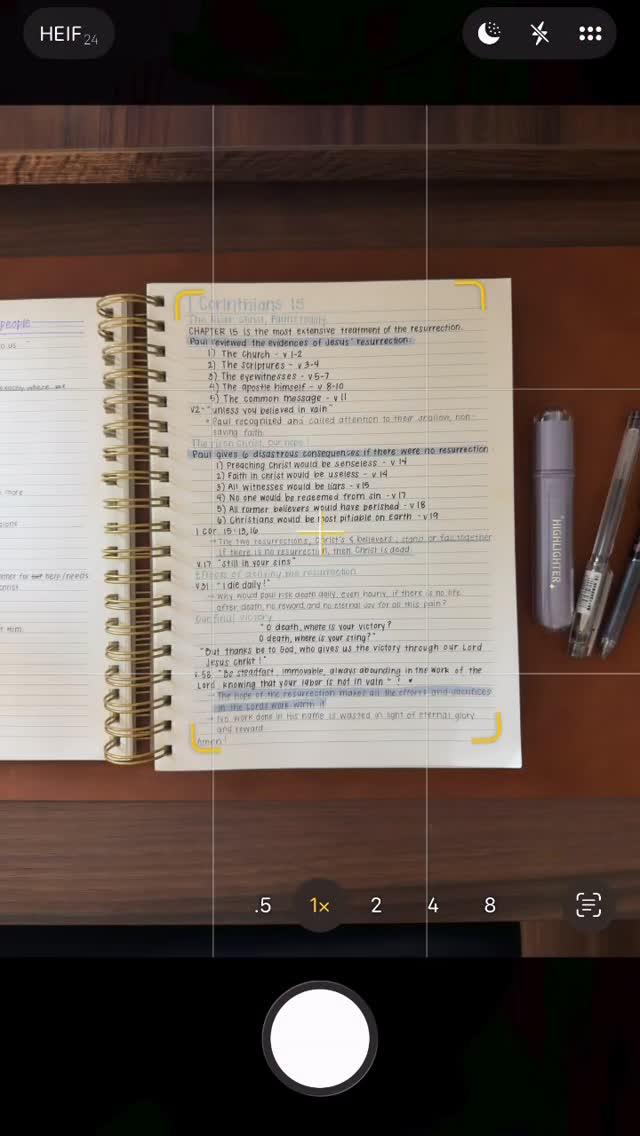 HEIF 24
people
to us
more
help/needs
1 Corinthians 15
The Risen Christ, Faith's Reality
CHAPTER 15 is the most extensive treatment of the resurrection.
Paul reviewed the evidences of Jesus' resurrection:
1) The Church - v 1-2
2) The scriptures - v 3-4
3) The eyewitnesses - v 5-7
4) The apostle himself - v 8-10
5) The common message - v 11
V2- "unless you believed in vain"
Paul recognized and called attention to their shallow, non-
saving faith.
The risen Christ, our hope!
Paul gives 6 disastrous consequences if there were no resurrection
1) Preaching Christ would be senseless - v 14
2) Faith in Christ would be useless - v 14
3) All witnesses would be liars - v 15
4) No one would be redeemed from sin - v 17
5) All former believers would have perished - v 18
6) Christians would be most pitiable on Earth - v 19
1 Cor. 15:13,16
→ The two resurrections, Christ's & believers', stand or fall together
if there is no resurrection, then Christ is dead.
V.17 "still in your sins"
Effects of denying the resurrection
V.31 "I die daily!"
→ Why would Paul risk death daily, even hourly, if there is no life
after death, no reward, and no eternal joy for all this pain?
Our final victory
"O death, where is your victory?
O death, where is your sting?"
"But thanks be to God, who gives us the victory through our Lord
Jesus Christ!"
V.58 "Be steadfast, immovable, always abounding in the work of the
Lord knowing that your labor is not in vain"
→ The hope of the resurrection makes all the efforts and sacrifices
in the Lord's work worth it!
→ No work done in His name is wasted in light of eternal glory
and reward.
Amen!
HIGHLIGHTER
.5 1× 2 4 8